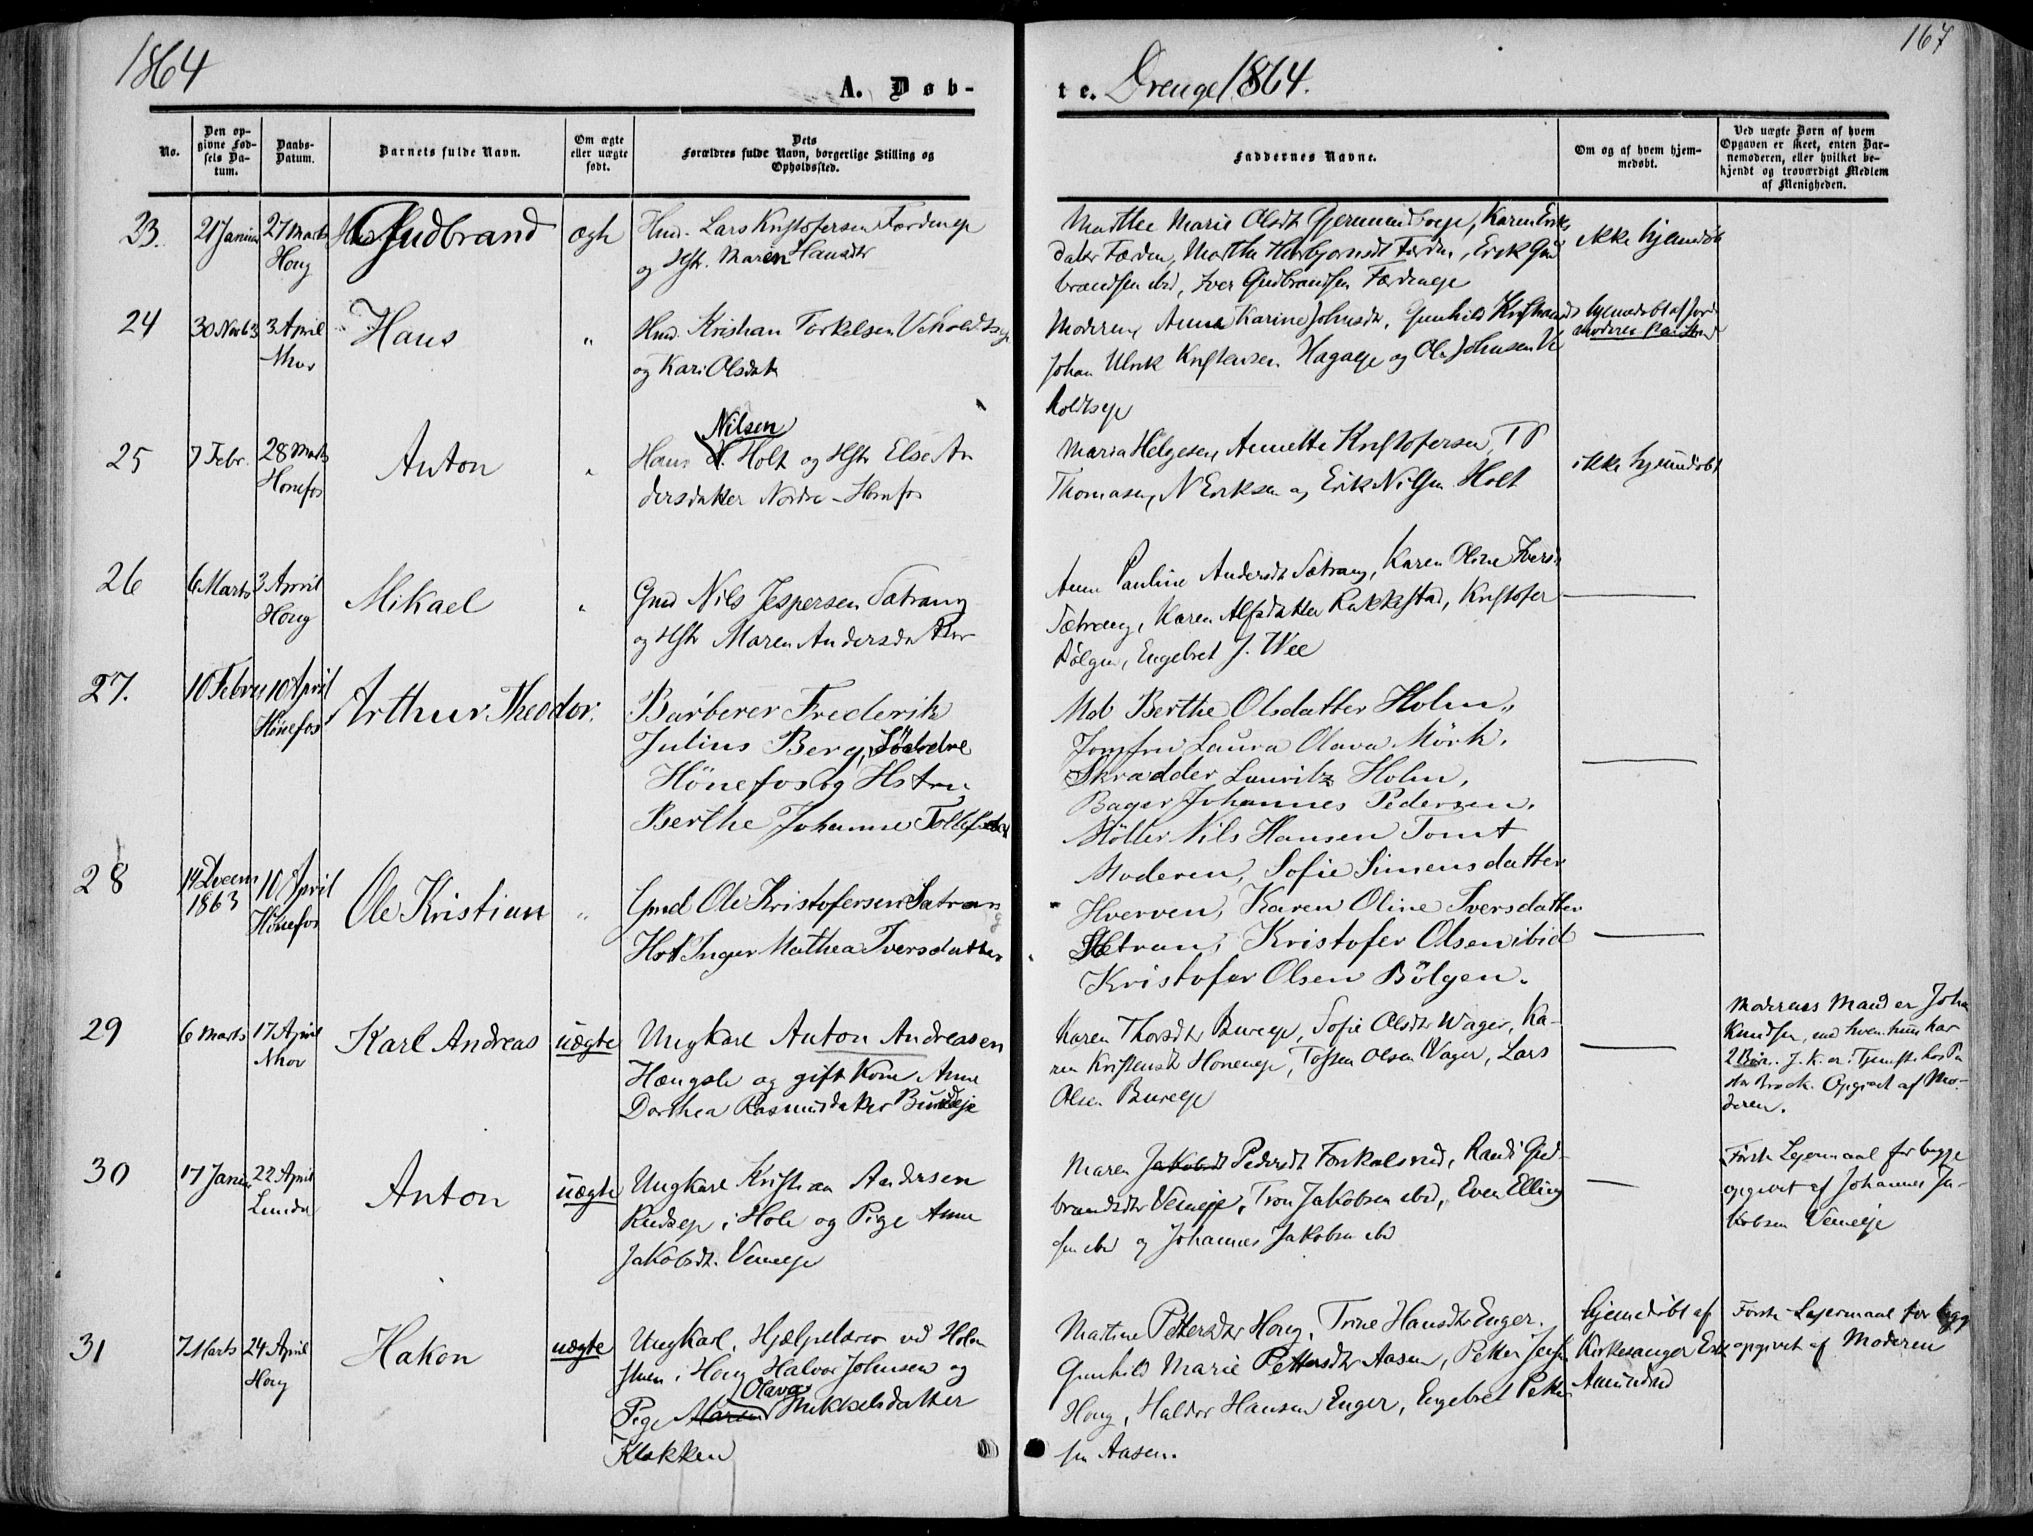 1864
A. Døb-
te. Drenge 1864.
167
No.
Den op-
givne Fød-
sels Da-
tum.
Daabs-
Datum.
Barnets fulde Navn.
Om ægte
eller uægte
født.
Dets
Forældres fulde Navn, borgerlige Stilling og
Opholdssted.
Faddernes Navne.
Om og af hvem hjem-
medøbt.
Ved uægte Børn af hvem
Opgaven er skeet, enten Bar-
nemoderen, eller hvilket be-
kjendt og troværdigt Medlem
af Menigheden.
23. 21 Januar 27 Marts Gudbrand ægte Hmd. Lars Kristofersen Færdeneje
Houg og Hstr. Maren Hansdtr
Marthe Marie Olsdt Gjermundboeje, Karen Eriks
datter Færden, Marthe Thorbjornsdt Færden, Erik Gud
brandsen ibd, Iver Gudbrandsen Færdeneje
ikke hjemdøbt
24 30 Novb 63 3 April Hans " Hmd. Kristian Torkelsen Veholdtseje
Nhov og Kari Olsdatter
Moderen, Anne Karine Johnsdt, Gunhild Kristiansdt
Johan Ulrik Kristensen Hagaeje og Ole Johnsen Ve
holdtseje
hjemedøbt af Jord
moderen
25 7 Febr. 28 Marts Anton " Hans N. Holt og Hstr Else An
Nilsen
Hønefos dersdatter Nordre Hønefos
Maria Helgesen, Annette Kristofersen, T P
Thomasen, N Eriksen og Erik Nilsen Holt
ikke hjemdøbt
26 6 Marts 3 April Mikael " Gmd Nils Jespersen Sætrang
Houg og Hstr Maren Andersdatter
Anne Pauline Andersdt Sætrang, Karen Oline Iversdt
Sætrang, Karen Alfsdatter Rakkestad, Kristofer
Bølgen, Engebret J. Wee
27. 10 Febru 10 April Arthur Theodor. Barberer Frederik
Hönefos Julius Berg, Söndre
Hönefos og Hstru
Berthe Johanne Tollefsdat
Mad Berthe Olsdatter Holm,
Jomfru Laura Olava Mörk,
Skrædder Lauritz Holm,
Bager Johannes Pedersen,
Möller Nils Hansen Tomt
28 14 Decem 10 April Ole Kristian " Gmd Ole Kristofersen Sætrang
1863 Hönefos Hst Inger Mathea Iversdatter
Moderen, Sofie Simensdatter
Hverven, Karen Oline Iversdatter
Sætran, Kristofer Olsen ibid
Kristofer Olsen Bölgen.
29 6 Marts 17 April Karl Andreas uægte Ungkarl Anton Andreasen
Nhov Hængsle og gift Kone Anne
Dorthea Rasmusdatter Bureje
Karen Thorsdtr Bureeje, Sofie Olsdtr Wager, Ka-
ren Kristensdt Honeneje, Tossen Olsen Wager, Lars
Olsen Bureeje
Moderens Mand er Johan
Knudsen, med hvem hun har
2 Børn. J. K. er i Tjeneste hos Pa
stor Brock. Opgivet af Mo-
deren.
30 17 Janua 22 April Anton uægte Ungkarl Kristian Andersen
Lunder Rudseje i Hole og Pige Anne
Jakobsdt. Vemeeje
Maren Jakobsdt Pedersdt Forkalsrud, Randi Gud-
brandsdtr Vemeeje, Tron Jakobsen ibd, Even Elling
sen ibd og Johannes Jakobsen ibd
Første Lejermaal for begge
opgivet af Johannes Ja-
kobsen Vemeeje
31 7 Marts 24 April Hakon uægte Ungkarl, Hjælpelærer ved Holm
Houg stuen i Houg Halvor Johnsen og
Olava
Pige Maren Mikkelsdatter
Klækken
Mathine Pettersdtr Houg, Trine Hansdtr Enger.
Gunhild Marie Pettersdtr Aasen, Petter Jens
Houg, Haldor Hansen Enger, Engebret Petter
sen Aasen.
hjemedøbt af
Kirkesanger Erik
Amundrud
Første Lejermaal for begge
opgivet af Moderen